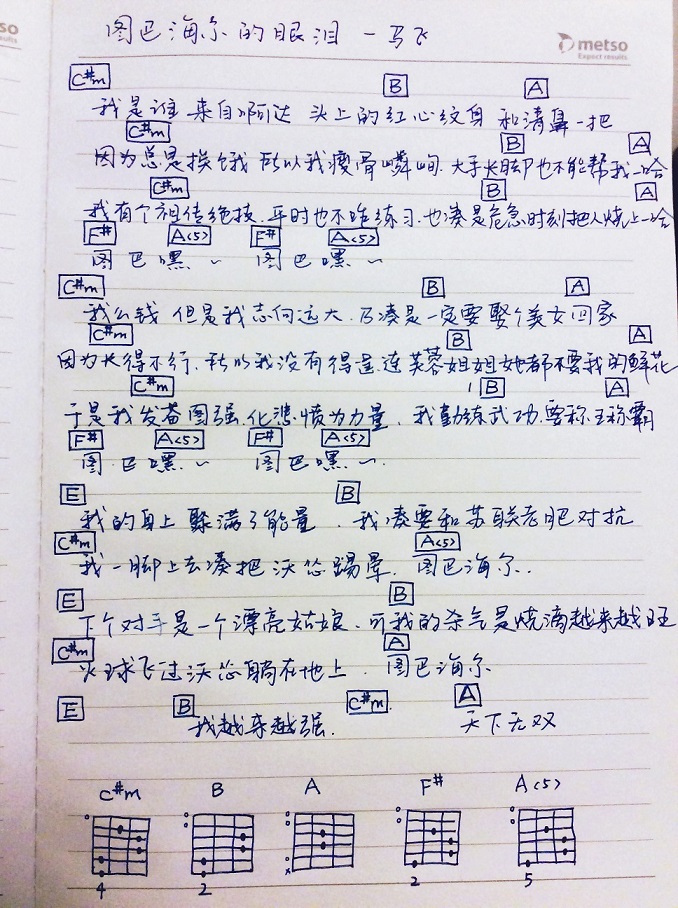 图巴海尔的眼泪 — 马飞
metso
Expect results
C#m B A
我是谁 来自啊达 头上的红心纹身 和清鼻一把
C#m B A
因为总是挨饿我 所以我瘦骨嶙峋. 大手长脚也不能帮我一哈
C#m B A
我有个祖传绝技. 平时也不咋练习. 也凑是危急时刻把人烧上一哈
F# A(5) F# A(5)
图巴嘿 ~ 图巴嘿 ~
C#m B A
我么钱 但是我志向远大. 乃凑是一定要娶个美女回家
C#m B A
因为长得不行. 所以我没有得逞. 连芙蓉姐姐她都不要我的鲜花
C#m B A
于是我发奋图强. 化悲愤为力量. 我勤练武功. 要称王称霸
F# A(5) F# A(5)
图巴嘿 ~ 图巴嘿 ~.
E B
我的身上聚满了能量. 我凑要和苏联老肥对抗
C#m A(5)
我一脚上去凑把沃怂踢晕. 图巴海尔..
E B
下个对手是一个漂亮姑娘. 可我的杀气是烧滴越来越旺
C#m A
火球飞过沃怂躺在地上. 图巴海尔
E B C#m. A
我越来越强. 天下无双
C#m B A F# A(5)
4 2 x 2 5